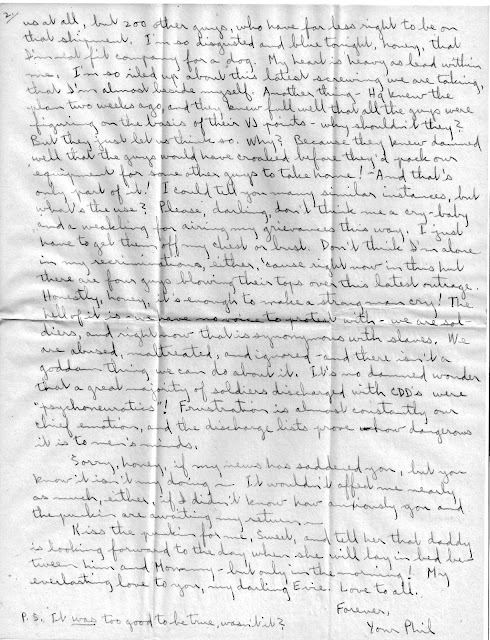 2.
us at all, but 200 other guys, who have far less right to be on
that shipment. I'm so disgusted and blue tonight, honey, that
I'm not fit company for a dog. My heart is heavy as lead within
me. I'm so riled up about this latest screwing we are taking,
that I'm almost beside myself. Another thing - Hq knew the
plan two weeks ago, and they knew full well that all the guys were
figuring on the basis of their VJ points - why shouldn't they?
But they just let us think so. Why? Because they knew damned
well that the guys would have croaked before they'd pack our
equipment for some other guys to take home! - And that's
only part of it! I could tell you many similar instances, but
what's the use? Please, darling, don't think me a cry-baby
and a weakling for airing my grievances this way. I just
have to get them off my chest or bust. Don't think I'm alone
in my recriminations, either, 'cause right now in this hut
there are four guys blowing their tops over this latest outrage.
Honestly, honey, it's enough to make a strong man cry! The
hell of it is - we have no voice to protest with - we are sol-
diers, and right now that is synonymous with slaves. We
are abused, maltreated, and ignored - and there isn't a
goddam thing we can do about it. It's no damned wonder
that a great majority of soldiers discharged with CDD's were
"psychoneurotics"! Frustration is almost constantly our
chief emotion, and the discharge lists prove how dangerous
it is to men's minds.
Sorry, honey, if my news has saddened you, but you
know it isn't my doing - It wouldn't affect me nearly
as much, either, if I didn't know how anxiously you and
the punkin are awaiting my return -
Kiss the punkin for me, Sweet, and tell her that daddy
is looking forward to the day when she will lay in bed be-
tween him and Mommy - but only in the morning! My
everlasting love to you, my darling Evie. Love to all.
Forever,
Your Phil
P.S. It was too good to be true, wasn't it?